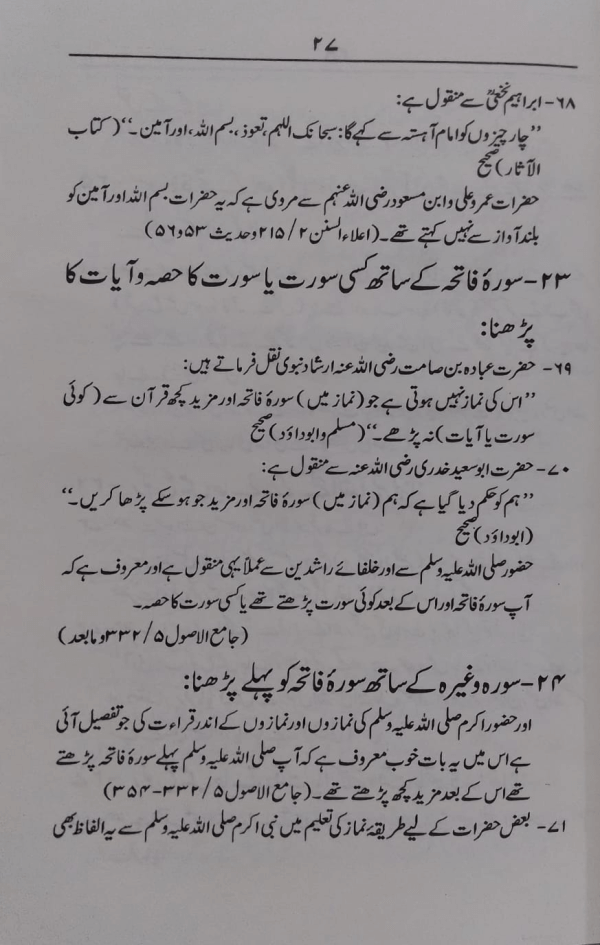 ۲۷
۶۸- ابراہیم نخعیؒ سے منقول ہے:
’’چار چیزوں کو امام آہستہ سے کہے گا: سبحانک اللہم، تعوذ، بسم اللہ، اور آمین۔‘‘ (کتاب
الآثار) صحیح
حضرات عمر و علی و ابن مسعود رضی اللہ عنہم سے مروی ہے کہ یہ حضرات بسم اللہ اور آمین کو
بلند آواز سے نہیں کہتے تھے۔ (اعلاء السنن ۲/۲۱۵ وحدیث ۵۳ و ۵۶)
۲۳- سورۂ فاتحہ کے ساتھ کسی سورت یا سورت کا حصہ و آیات کا
پڑھنا:
۶۹- حضرت عبادہ بن صامت رضی اللہ عنہ ارشاد نبوی نقل فرماتے ہیں:
’’اس کی نماز نہیں ہوتی ہے جو (نماز میں) سورۂ فاتحہ اور مزید کچھ قرآن سے (کوئی
سورت یا آیات) نہ پڑھے۔‘‘ (مسلم و ابوداؤد) صحیح
۷۰- حضرت ابوسعید خدری رضی اللہ عنہ سے منقول ہے:
’’ہم کو حکم دیا گیا ہے کہ ہم (نماز میں) سورۂ فاتحہ اور مزید جو ہو سکے پڑھا کریں۔‘‘
(ابوداؤد) صحیح
حضور صلی اللہ علیہ وسلم سے اور خلفائے راشدین سے عملاً یہی منقول ہے اور معروف ہے کہ
آپ سورۂ فاتحہ اور اس کے بعد کوئی سورت پڑھتے تھے یا کسی سورت کا حصہ۔
(جامع الاصول ۵/۳۳۲ وما بعد)
۲۴- سورہ وغیرہ کے ساتھ سورۂ فاتحہ کو پہلے پڑھنا:
اور حضور اکرم صلی اللہ علیہ وسلم کی نمازوں اور نمازوں کے اندر قراءت کی جو تفصیل آئی
ہے اس میں یہ بات خوب معروف ہے کہ آپ صلی اللہ علیہ وسلم پہلے سورۂ فاتحہ پڑھتے
تھے اس کے بعد مزید کچھ پڑھتے تھے۔ (جامع الاصول ۵/۳۳۲-۳۵۴)
۷۱- بعض حضرات کے لیے طریقۂ نماز کی تعلیم میں نبی اکرم صلی اللہ علیہ وسلم سے یہ الفاظ بھی